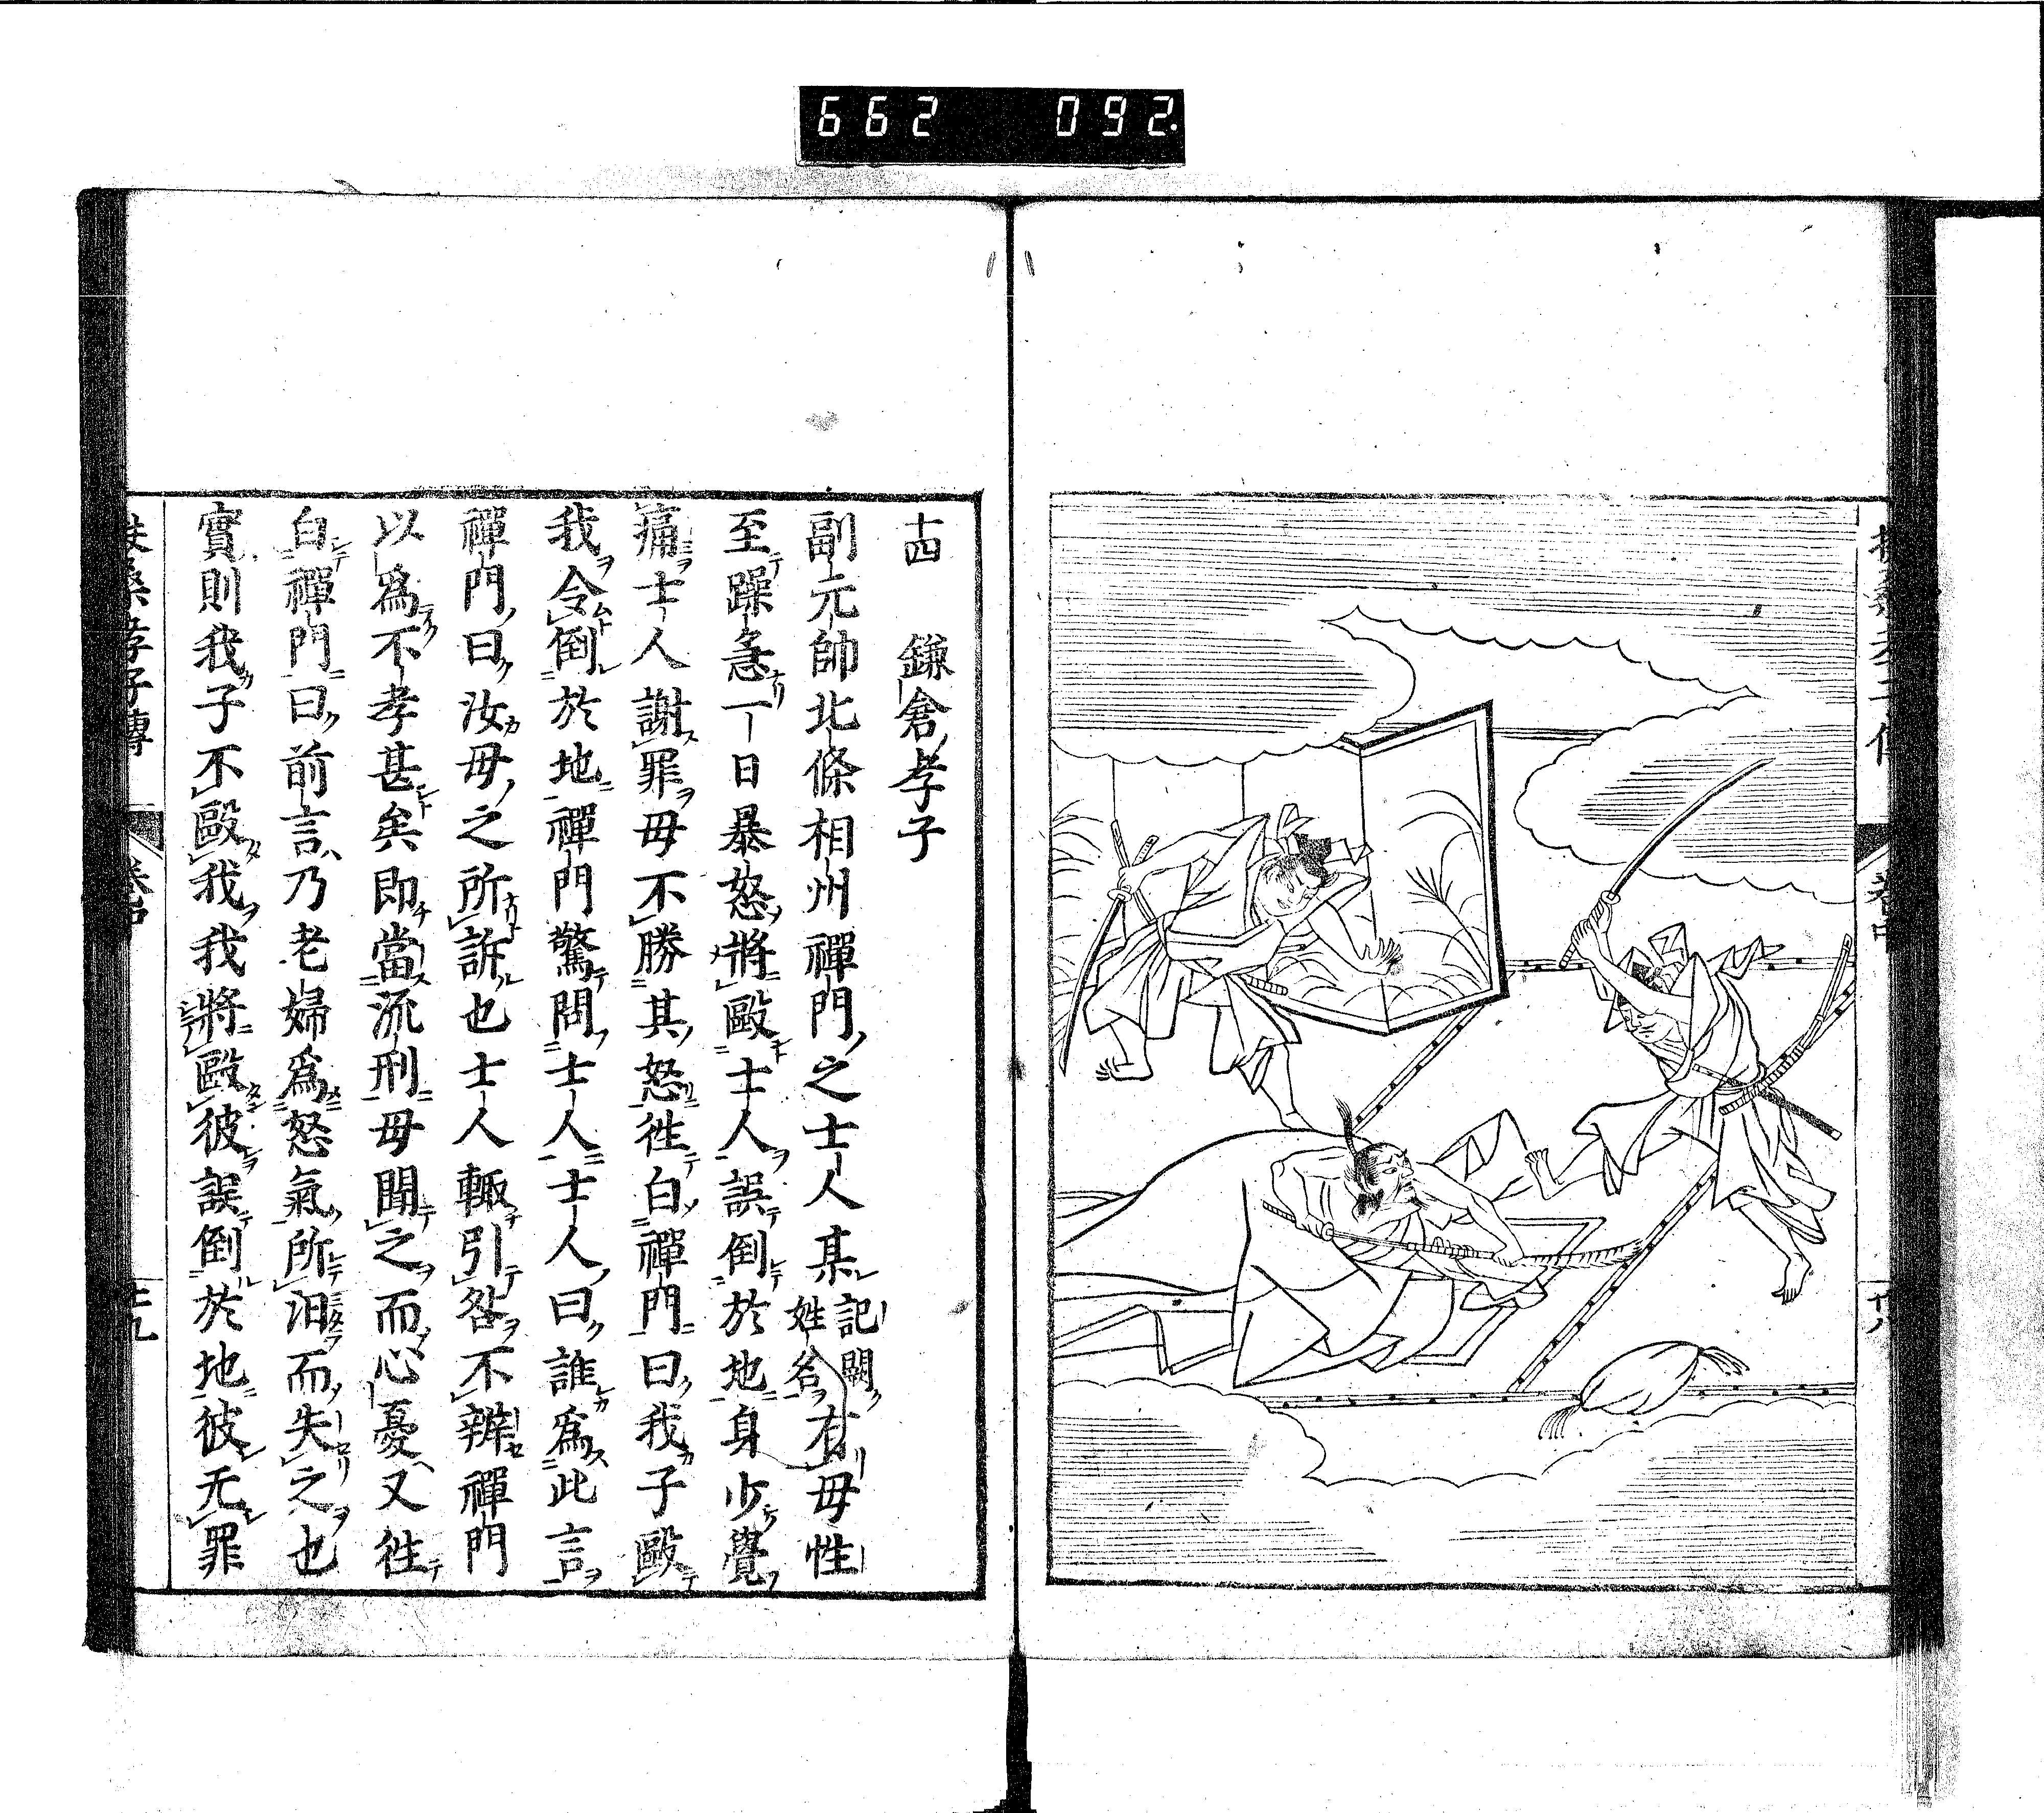 662 092.
十四 鎌倉孝子
副元帥北條相州禪門之士人某記闕姓名有母性
至躁急一日暴怒將毆士人誤倒於地身少覺
痛士人謝罪母不勝其怒徃白禪門曰我子毆
我令倒於地禪門驚問士人士人曰誰爲此言
禪門曰汝母之所訴也士人輙引咎不辨禪門
以爲不孝甚矣即當流刑母聞之而心憂又徃
白禪門曰前言乃老婦爲怒氣所汨而失之也
實則我子不毆我我將毆彼誤倒於地彼无罪
孝子傳